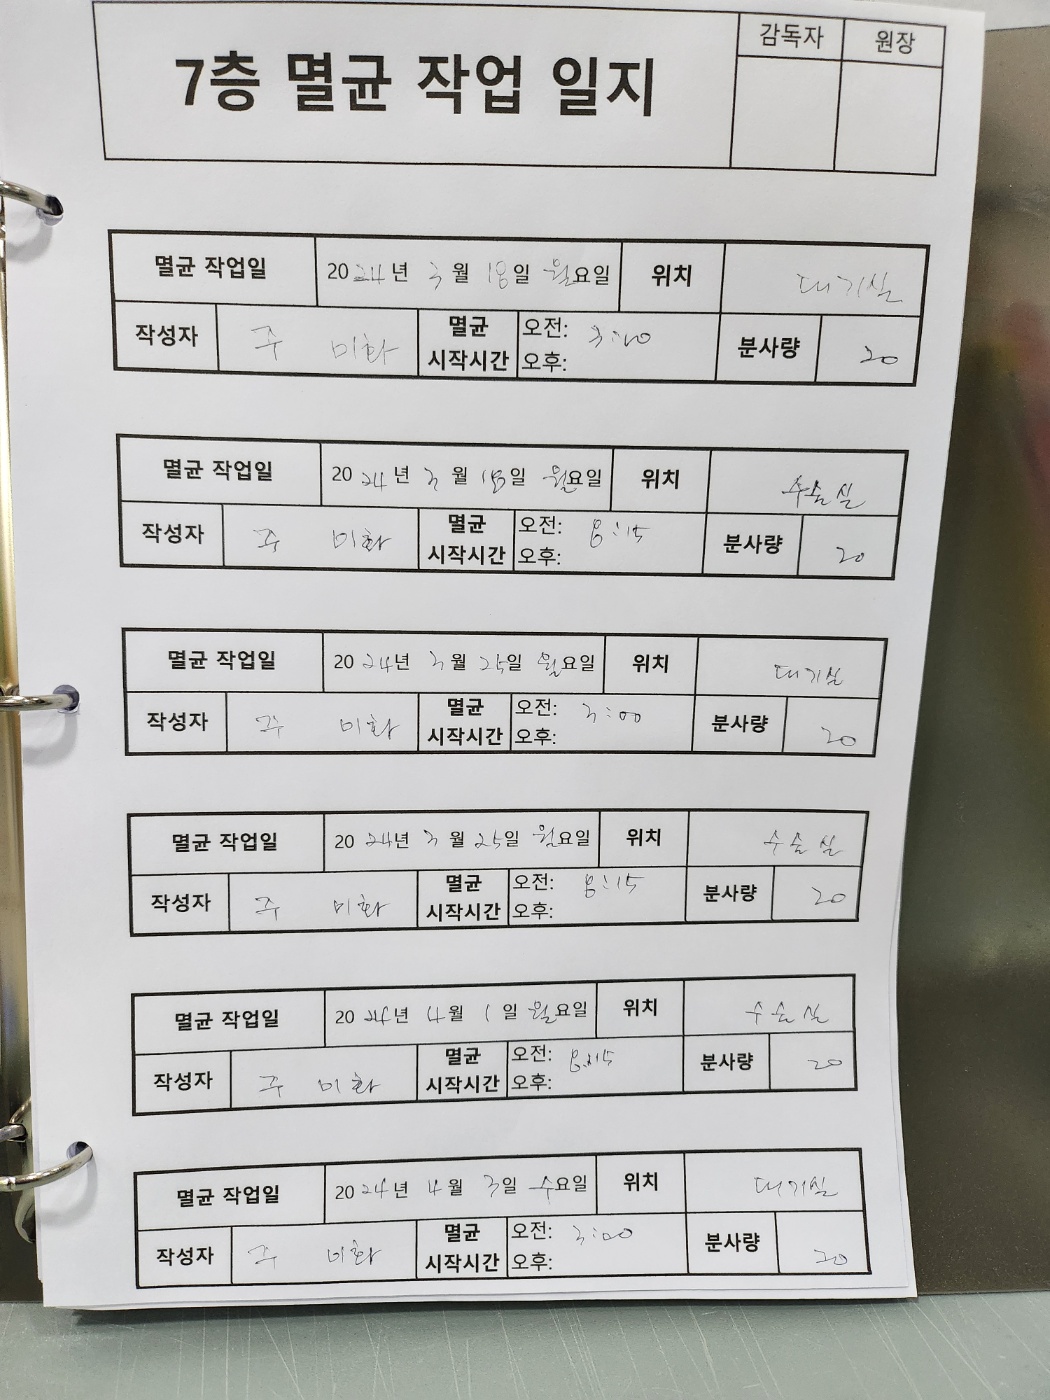 7층 멸균 작업 일지
감독자 원장
멸균 작업일 2024년 3월 18일 월요일 위치 대기실
작성자 주 미화 멸균 시작시간 오전: 3:00 오후: 분사량 20
멸균 작업일 2024년 3월 18일 월요일 위치 수술실
작성자 주 미화 멸균 시작시간 오전: 8:15 오후: 분사량 20
멸균 작업일 2024년 3월 25일 월요일 위치 대기실
작성자 주 미화 멸균 시작시간 오전: 3:00 오후: 분사량 20
멸균 작업일 2024년 3월 25일 월요일 위치 수술실
작성자 주 미화 멸균 시작시간 오전: 8:15 오후: 분사량 20
멸균 작업일 2024년 4월 1일 월요일 위치 수술실
작성자 주 미화 멸균 시작시간 오전: 8:15 오후: 분사량 20
멸균 작업일 2024년 4월 3일 수요일 위치 대기실
작성자 주 미화 멸균 시작시간 오전: 3:00 오후: 분사량 20